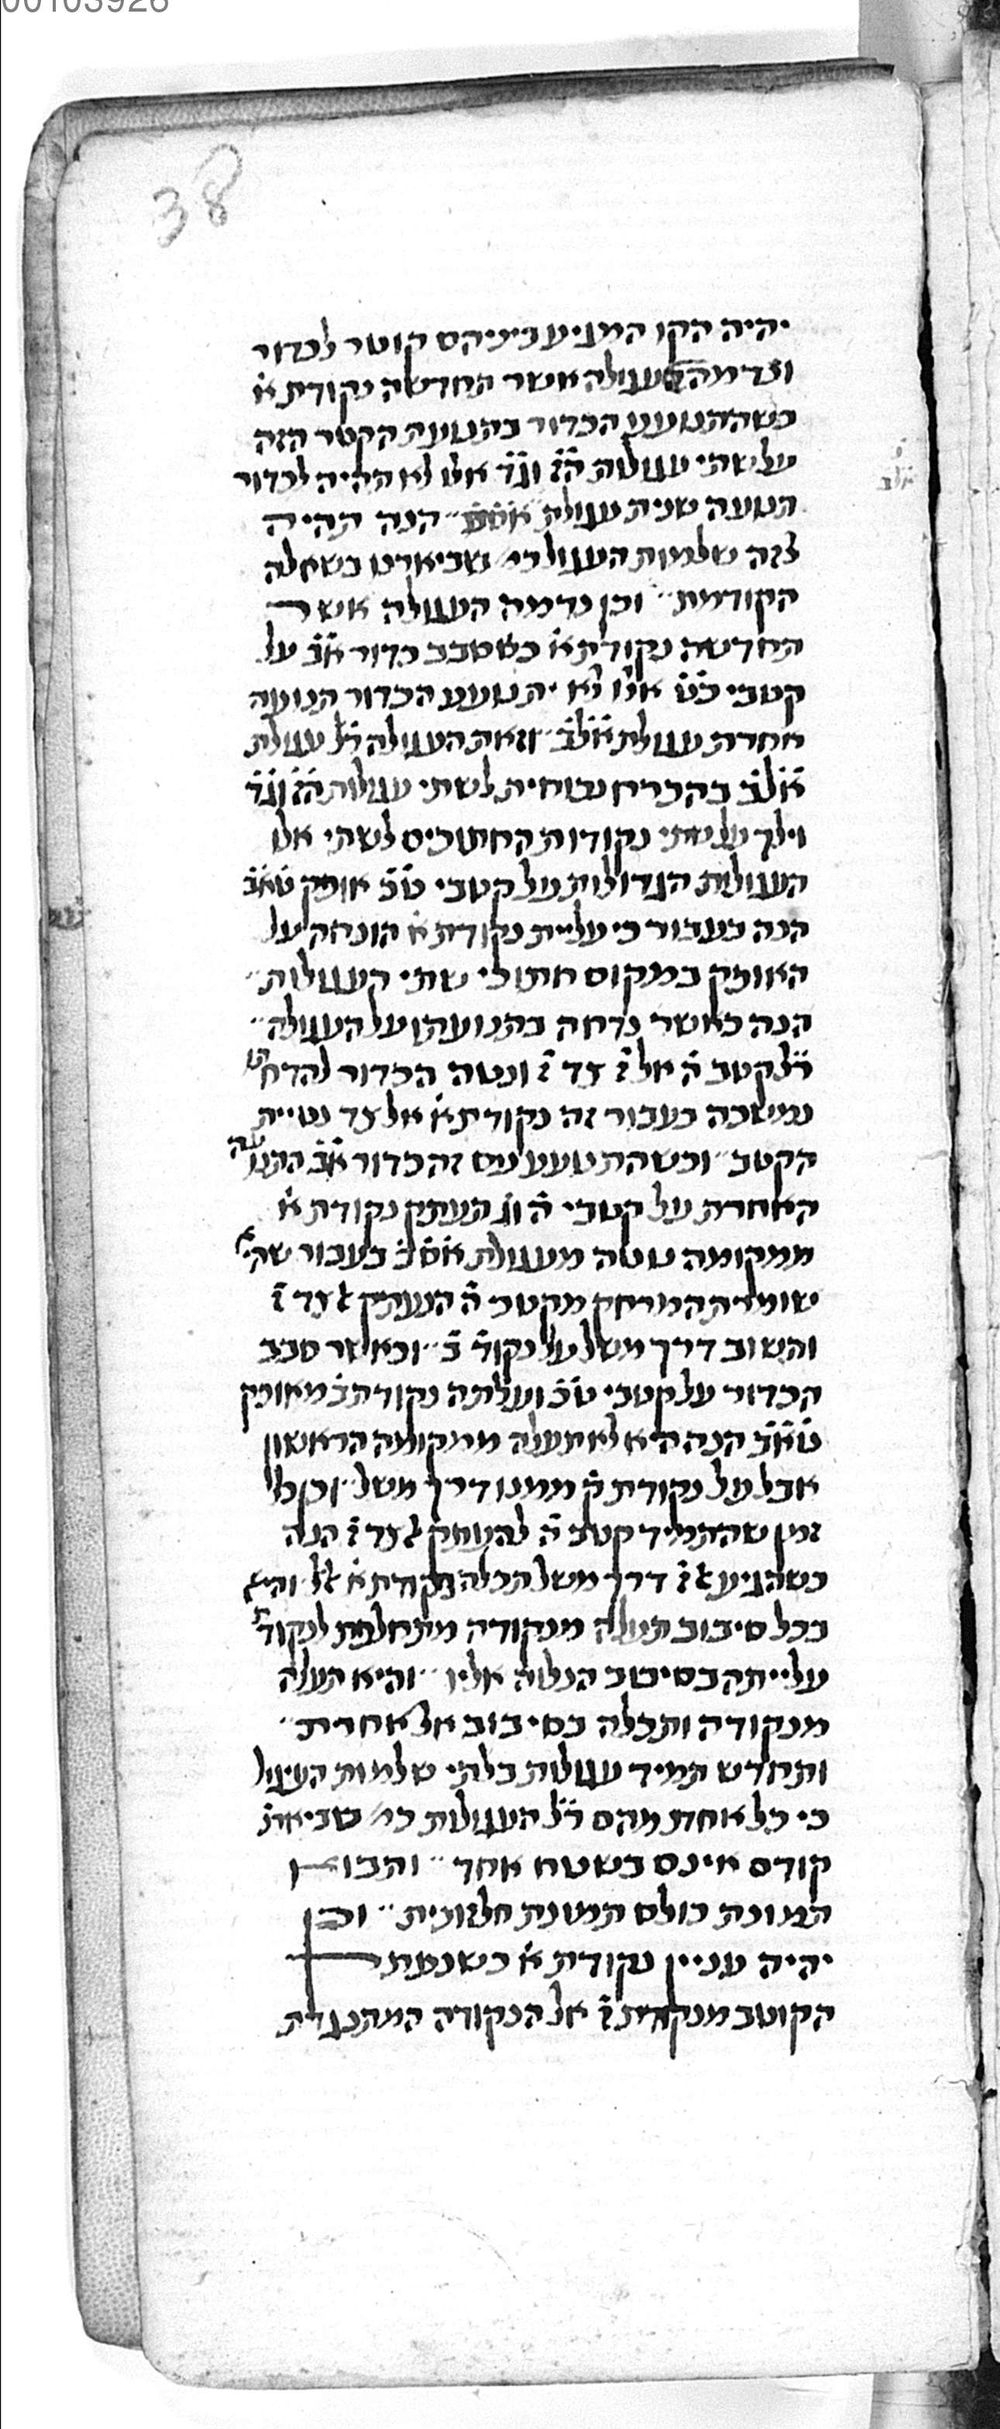 00103926
38
יהיה הקו המגיע ביניהם קוטר לכדור
ונדמה העגולה אשר תחדשה נקודת א
כשהתנועע הכדור בתנועת הקטר הזה
על שתי עגולות הז וגד אלו לא תהיה לכדור
תנועה שנית עגולת הנה תהיה
בזה שלמות העגול כמ׳ שביארנו בשאלה
הקודמת וכן נדמה העגולה אשר
תחדשה נקודת א כשסבב כדור אב על
קטבי אלו לא יתנועע הכדור תנועה
אחרת עגולת אלב וזאת העגולה ר״ל עגולת
אלב בהכרח נכוחית לשתי עגולות הז וגד
וילך על שתי נקודות החתוכים לשתי אלו
העגולות הגדולות על קטבי אופק טאב
הנה בעבור כי עליית נקודת א הונחה על
האופק במקום חתוכי שתי העגולות
הנה כאשר נדחה בתנועתו על העגולה
ר״ל קטב ה אל ז צד ז ונטה הכדור להדחתו
נמשכה בעבור זה נקודת א אל צד נטיית
הקטב וכשהתנועע עם זה כדור אב התנועה
האחרת על קטבי ה וג תעתק נקודת א
ממקומה נוטה מעגולת בעבור שהיא
שומרת המרחק מקטב ה הנעתק לצד ז
והשוב דרך משל על נקוד׳ ב וכאשר סבב
הכדור על קטבי ועלתה נקודת ב מאופק
טאב הנה היא לא תעלה ממקומה הראשון
אבל על נקודת ק ממנו דרך משל וכן כל
זמן שהתמיד קטב ה להעתק לצד ז הנה
כשהגיע לז דרך משל תכלה נקודת א לל והיא
בכל סיבוב תעלה מנקודה מתחלפת לנקודת
עלייתה בסיבוב הנלוה אליו והיא תעלה
מנקודה ותכלה בסיבוב אל אחרת
ותחדש תמיד עגולות בלתי שלמות העיגול
כי כל אחת מהם ר״ל העגולות כמ׳ שביארנו
קודם אינם בשטח אחד ותבואן
תמונת כולם תמונת חלזונית וכן
יהיה עניין נקודת א כשנעתק
הקוטב מנקודת ז אל הנקודה המתנגדת
אלב